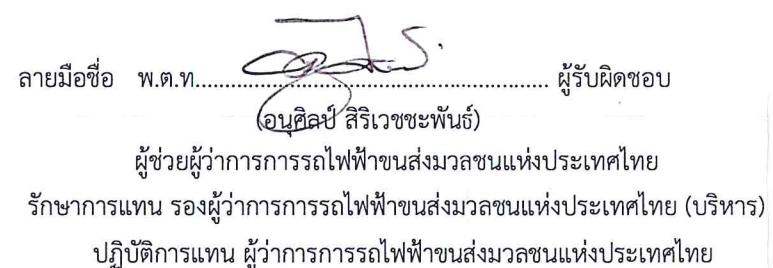 ลายมือชื่อ พ.ต.ท.................................................... ผู้รับผิดชอบ
(อนุศิลป์ สิริเวชชะพันธ์)
ผู้ช่วยผู้ว่าการการรถไฟฟ้าขนส่งมวลชนแห่งประเทศไทย
รักษาการแทน รองผู้ว่าการการรถไฟฟ้าขนส่งมวลชนแห่งประเทศไทย (บริหาร)
ปฏิบัติการแทน ผู้ว่าการการรถไฟฟ้าขนส่งมวลชนแห่งประเทศไทย